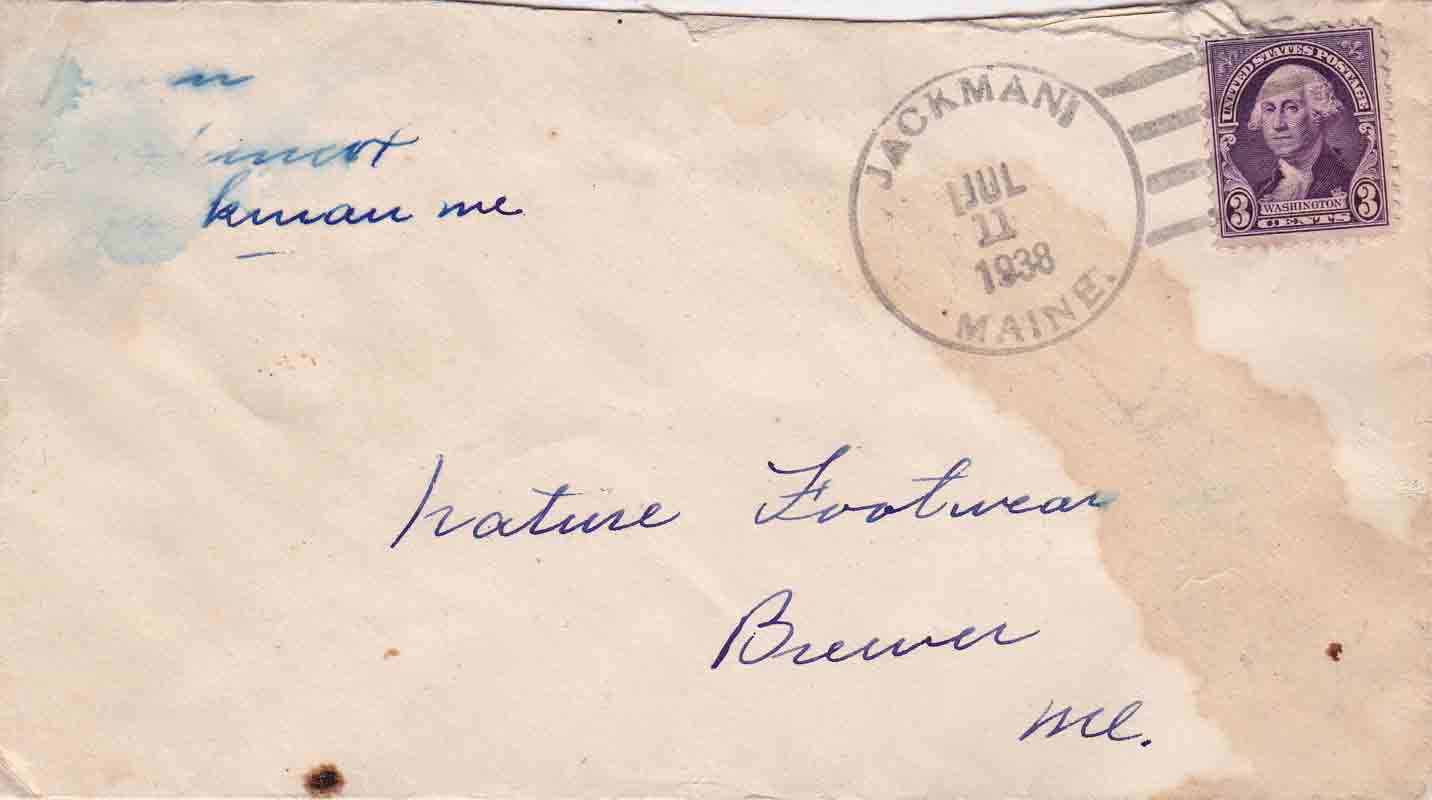 kman me
JACKMAN
JUL
11
1938
MAINE.
UNITED STATES POSTAGE
3 WASHINGTON 3
CENTS
Nature Footwear
Brewer
Me.